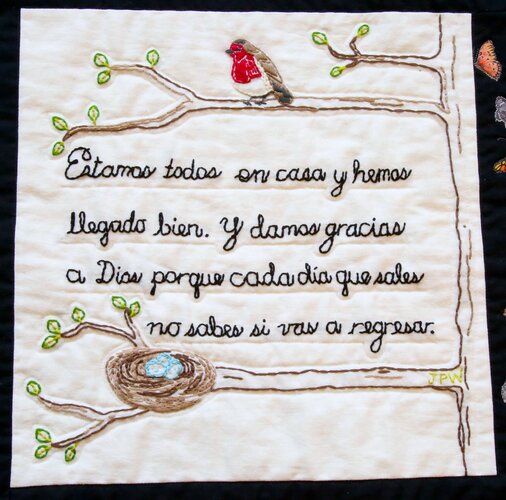 Estamos todos en casa y hemos
llegado bien. Y damos gracias
a Dios porque cada día que sales
no sabes si vas a regresar.
JPW